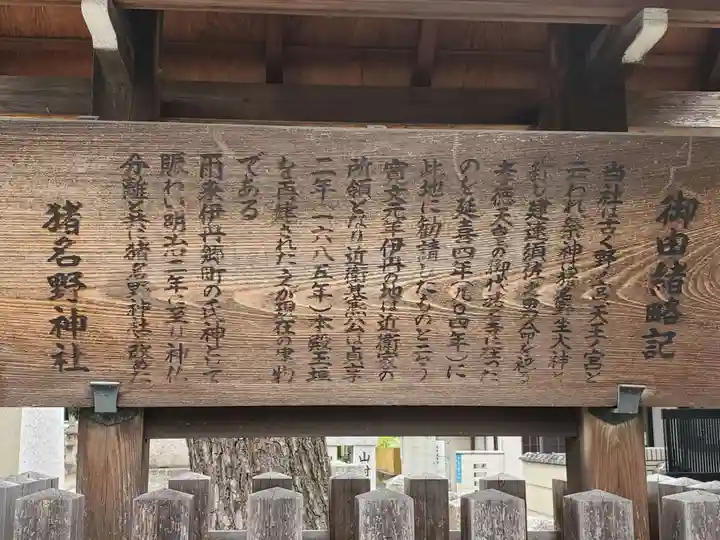 御由緒略記
当社は古く野々宮天王ノ宮と
云われ祭神猪名野坐大神と
建速須佐之男命を祀る
孝徳天皇の御代 に在った
のを延喜四年(九〇四年)に
此地に勧請したものと云う
寛文元年伊丹の地は近衛家の
所領となり近衛基熙公は貞享
二年(一六八五年)本殿玉垣
を再建された之が現在の建物
である
雨来伊丹郷町の氏神として
賑わい明治二年に至り神仏
分離と共に猪名野神社と改めた
猪名野神社
山村